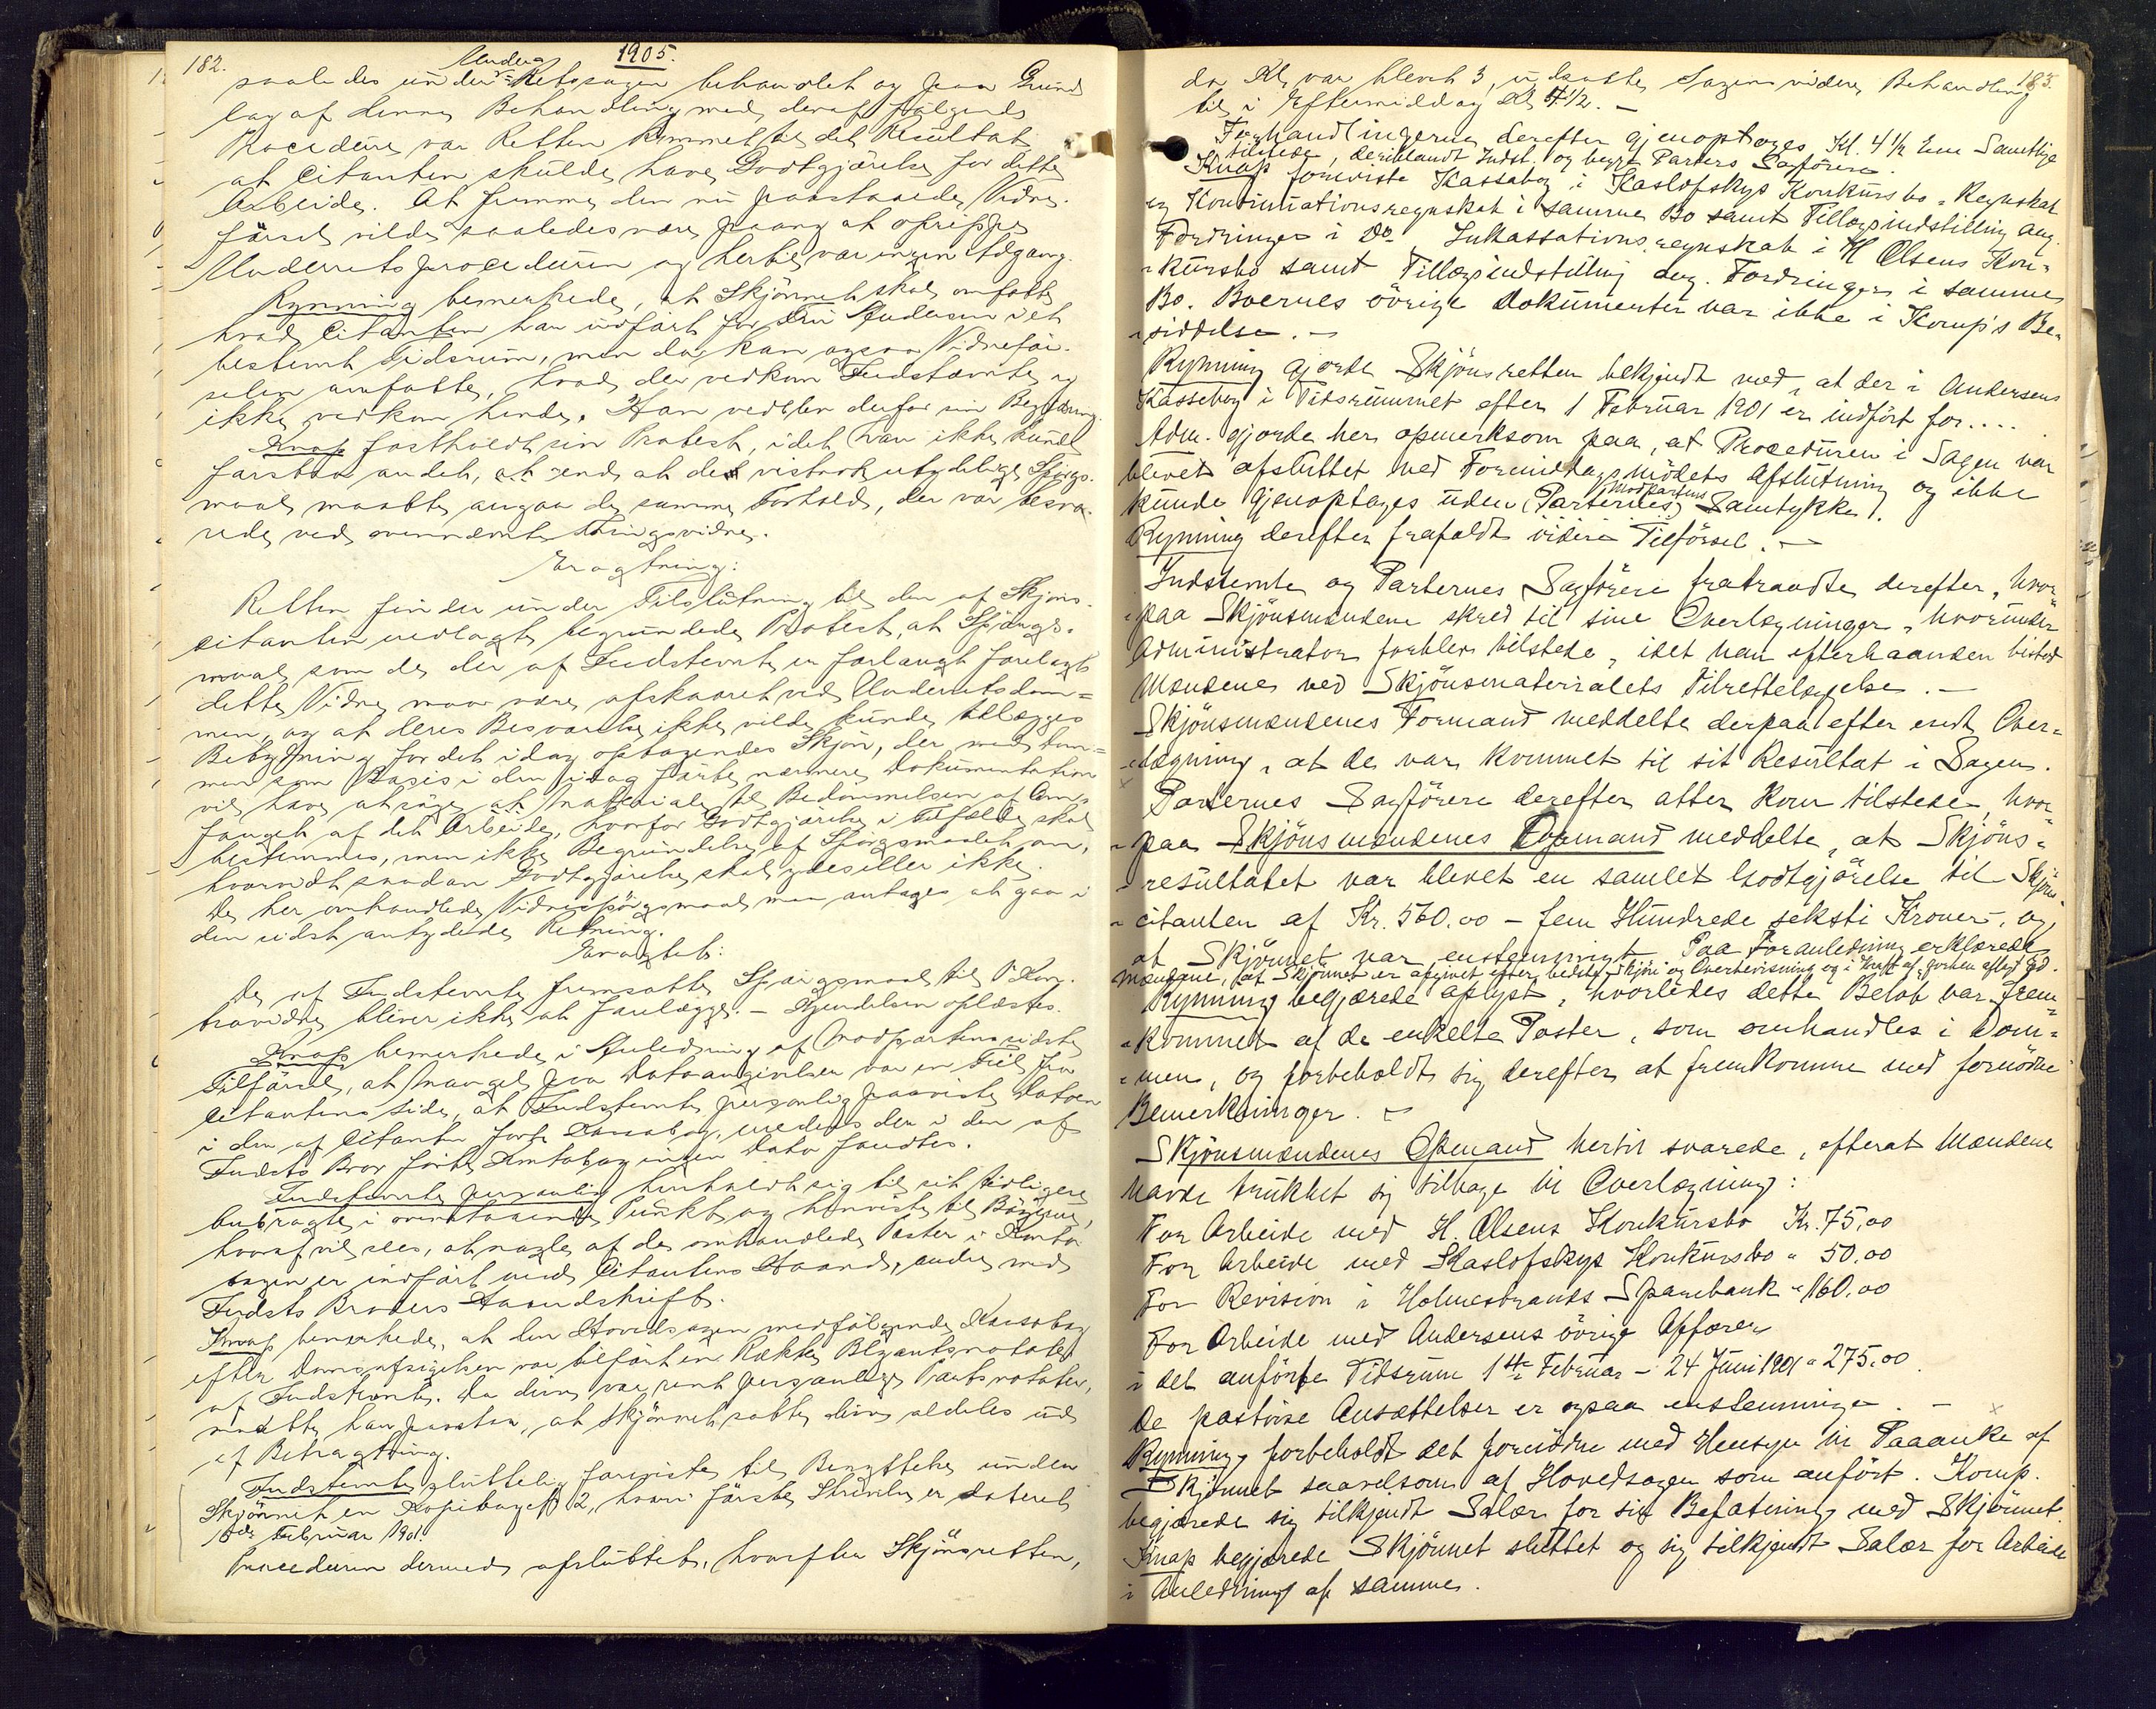 182.
1905.
saaledes under Underretssagen behandlet og paa Grund
lag af denne Behandling med deraf følgende
Procedure var Retten kommet til det Resultat
at Citanten skulde have Godtgjørelse for dette
Arbeide. At fremme den nu paastaaede Vidne-
førsel vilde saaledes være paany at oprippe
Underretsproceduren og hertil var ingen Adgang.
Rynning bemerkede, at Skjønnet skal omfatte
hvad Citanten har udført for Andersen i et
bestemt Tidsrum, men da kan ogsaa Vidneför-
selen omfatte, hvad der vedkom Indstevnte og
ikke vedkom hende. Han vedblev derfor sin Begjæring.
Knap fastholdt sin Protest, idet han ikke kunde
forstaa andet, end at de vistnok utydelige Spörgs-
maal maatte angaa de samme Forhold, der var besva-
rede ved ovennævnte Thingsvidne.
Eragtning:
Retten finder under Tilslutning til den af Skjöns-
citanten nedlagte begrundede Protest, at Spörgs-
maal som de der af Indstevnte er forlangt forelagt
dette Vidne maa være afskaaret ved Underretsdom-
men, og at deres Besvarelse ikke vilde kunde tillægges
Betydning for det idag optagendes Skjön, der med Dom-
men som Basis i den idag förte nærmere Dokumentation
vil have at söge sit Materiale til Bedömmelsen af Om-
fanget af det Arbeide, hvorfor Godtgjörelse i Tilfælde skal
bestemmes, men ikke Begrundelse af Spörgsmaalet om,
hvorvidt saadan Godtgjörelse skal ydes eller ikke.
De her omhandlede Vidnespörgsmaal maa antages at gaa i
den sidst antydede Retning.
Eragtet:
De af Indstevnte fremsatte Spörgsmaal til
bliver ikke at forelægge. – Kjendelsen oplæstes.
Knap bemerkede i Anledning af Modpartens sidste
Tilförsel, at Mangel paa Datoangivelser var en Feil fra
Citantens Side, at Indstevnte personlig paaviste Datoen
i den af Citanten förte Kassabog, medens der i den af
Indsts Bror förte Kontobog ingen Dato fandtes.
Indstevnte personlig henholdt sig til sit tidligere
anbragte i ovenstaaende Punkt og henviste til Bögerne,
hvoraf vil sees, at nogle af de omhandlede Poster i Konto-
bogen er indfört med Citantens Haand, andre med
Indsts Broders Haandskrift.
Knap bemerkede, at den Hovedsagen medfölgende Kassabog
efter Domsafsigelsen var tilfört en Række Blyantsnotater
af Indstevnte. Da disse var rent personlige Partsnotater,
maatte han paastaa, at Skjönnet satte disse aldeles ud
af Betragtning.
Indstevnte sluttelig foreviste til Benyttelse under
Skjönnet en Kopibog No 2, hvori förste Skrivelse er dateret
Februar 1901.
Proceduren dermed afsluttet, hvorefter Skjönsretten,
183.
da Kl. var blevet 3, udsatte Sagens videre Behandling
til i Eftermiddag Kl 4 1/2. –
Forhandlingerne derefter gjenoptoges Kl. 4 1/2 Em Samtlige
tilstede, deriblandt Indst. og begge Parters Sagförere.
Knap foreviste Kassabog i Kaslofskys Konkursbo, Regnskab
og Kontinuationsregnskab i samme Bo samt Tillægsindstilling ang.
Fordringer i Do, Inkassationsregnskab i H Olsens Kon-
kursbo samt Tillægsindstilling ang. Fordringer i samme
Bo. Boernes övrige Dokumenter var ikke i Komp's Be-
siddelse. –
Rynning gjorde Skjönsretten bekjendt med, at der i Andersens
Kassebog i Tidsrummet efter 1 Februar 1901 er indfört for....
Adm. gjorde her opmerksom paa, at Proceduren i Sagen var
blevet afsluttet ved Formiddagsmödets Afslutning og ikke
kunde gjenoptages uden (Parternes) Modpartens Samtykke.
Rynning derefter frafaldt videre Tilförsel. –
Indstevnte og Parternes Sagförere fratraadte derefter, hvor-
paa Skjönsmændene skred til sine Overlægninger, hvorunder
Administrator forblev tilstede, idet han efterhaanden bistod
Mændene ved Skjönsmaterialets Tilrettelæggelse. –
Skjönsmændenes Formand meddelte derpaa efter endt Over-
lægning, at de var kommet til sit Resultat i Sagen.
Parternes Sagförere derefter atter kom tilstede, hvor-
paa Skjönsmændenes Formand meddelte, at Skjöns-
resultatet var blevet en samlet Godtgjörelse til Skjöns-
citanten af Kr. 560.00 – fem Hundrede seksti Kroner –, og
at Skjönnet var enstemmigt. Paa Foranledning erklærede
Mændene, at Skjönnet er afgivet efter bedste Skjön og Overbevisning og i Kraft af forhen aflagt Ed.
Rynning begjærede oplyst, hvorledes dette Belöb var frem-
kommet af de enkelte Poster, som omhandles i Dom-
men, og forbeholdt sig derefter at fremkomme med fornödne
Bemerkninger. –
Skjönsmændenes Opmand hertil svarede, efterat Mændene
havde trukket sig tilbage til Overlægning:
For Arbeide med H. Olsens Konkursbo Kr. 75,00
For Arbeide med Kaslofskys Konkursbo " 50.00
For Revision i Holmestrands Sparebank " 160.00
For Arbeide med Andersens övrige Affærer
i det anförte Tidsrum 1ste Februar – 24 Juni 1901 " 275.00
De postvise Ansættelser er ogsaa enstemmige. –
Rynning forbeholdt det fornödne med Hensyn til Paaanke af
Skjönnet saavelsom af Hovedsagen som anfört. Komp.
begjærede sig tilkjendt Salær for sin Befatning med Skjönnet.
Knap begjærede Skjönnet sluttet og sig tilkjendt Salær for Arbeide
i Anledning af samme.